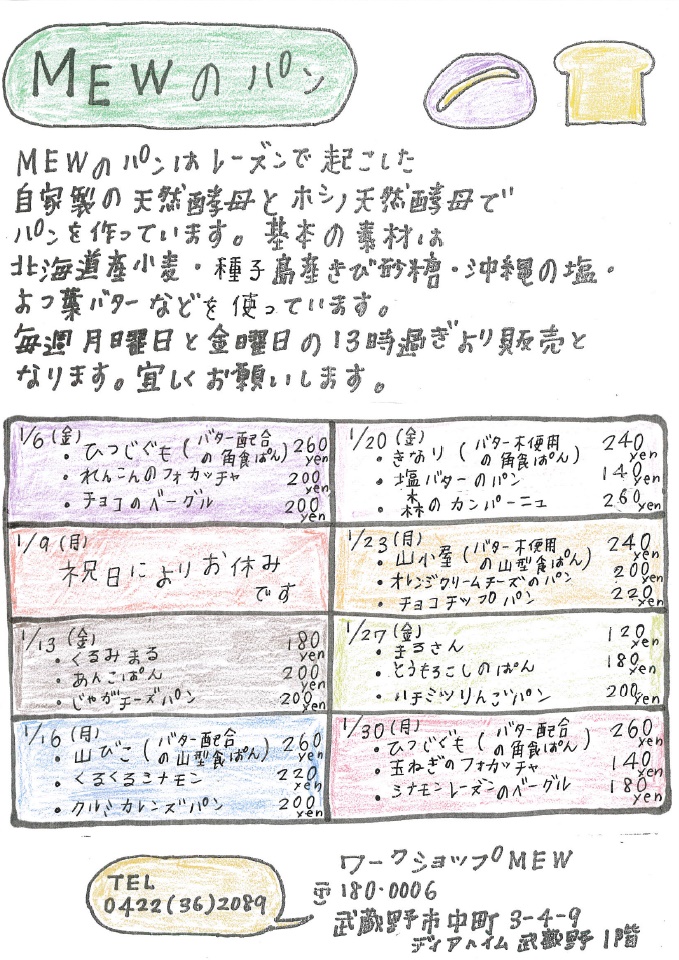 MEWのパン
MEWのパンはレーズンで起こした
自家製の天然酵母とホシノ天然酵母で
パンを作っています。基本の素材は
北海道産小麦・種子島産きび砂糖・沖縄の塩・
よつ葉バターなどを使っています。
毎週月曜日と金曜日の13時過ぎより販売と
なります。宜しくお願いします。
1/6(金)
・ひつじぐも(バター配合の角食ぱん)260yen
・れんこんのフォカッチャ 200yen
・チョコのベーグル 200yen
1/9(月)
祝日によりお休み
です
1/13(金)
・くるみまる 180yen
・あんこぱん 200yen
・じゃがチーズパン 200yen
1/16(月)
・山びこ(バター配合の山型食ぱん)260yen
・くるくるシナモン 220yen
・クルミカレンズパン 200yen
1/20(金)
・きなり(バター不使用の角食ぱん)240yen
・塩バターのパン 140yen
・森のカンパーニュ 260yen
1/23(月)
・山小屋(バター不使用の山型食ぱん)240yen
・オレンジクリームチーズのパン 200yen
・チョコチップパン 220yen
1/27(金)
・まろさん 120yen
・とうもろこしのぱん 180yen
・ハチミツりんごパン 200yen
1/30(月)
・ひつじぐも(バター配合の角食ぱん)260yen
・玉ねぎのフォカッチャ 140yen
・シナモンレーズンのベーグル 180yen
TEL
0422(36)2089
ワークショップMEW
〒180-0006
武蔵野市中町3-4-9
ディアハイム武蔵野1階